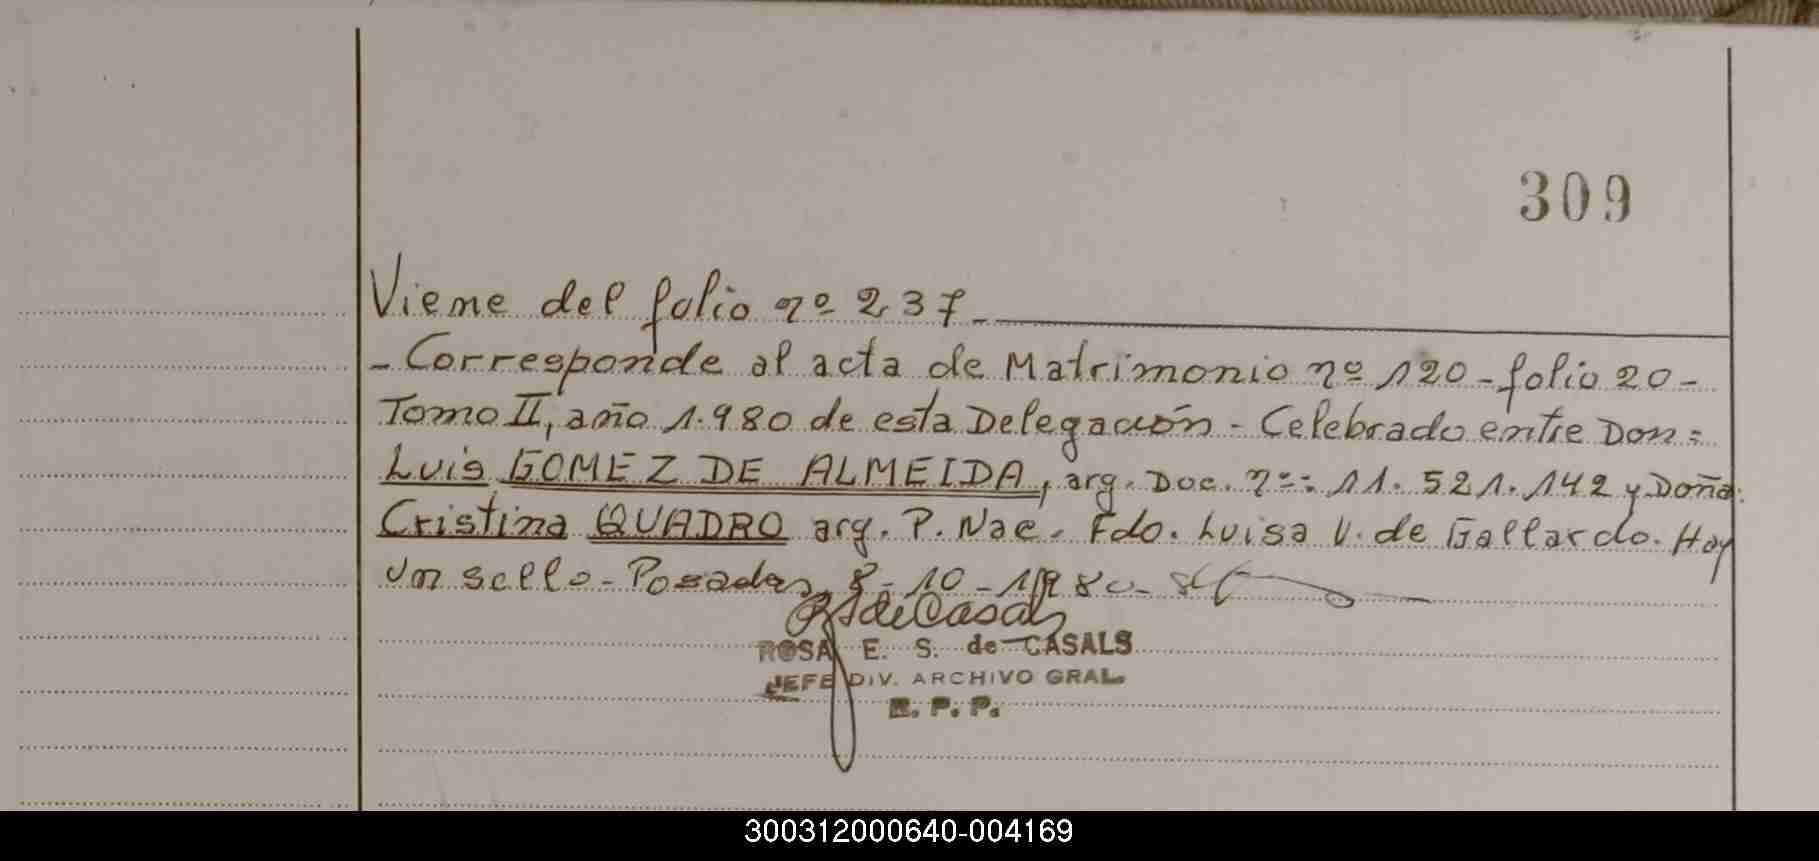 309
Viene del folio nº 237.
- Corresponde al acta de Matrimonio nº 120 - folio 20 -
Tomo II, año 1.980 de esta Delegación - Celebrado entre Don:
Luis GOMEZ DE ALMEIDA, arg. Doc. nº: 11.521.142 y Doña:
Cristina QUADRO arg. P. Nac. Fdo. Luisa V. de Gallardo. Hay
un sello - Posadas, 8-10-1980-
ROSA E. S. de CASALS
JEFE DIV. ARCHIVO GRAL.
R. P. P.
300312000640-004169